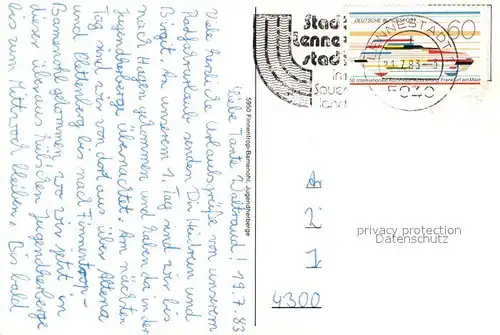 Liebe Tante Waltraud! 19.7.83
Viele herzliche Urlaubsgrüße von unserem
Radfahrurlaub senden Dir Heidrun und
Birgit. An unserem 1. Tag sind wir bis
nach Hagen gekommen und haben da in der
Jugendherberge übernachtet. Am nächsten
Tag sind wir von dort aus über Altena
und Plettenberg bis nach Finnentrop-
Bamenohl gekommen, wo wir jetzt in
dieser überaus hübschen Jugendherberge
bis zum Mittwoch bleiben. Bis bald
5950 Finnentrop-Bamenohl, Jugendherberge
Stadt
Lenne
stadt
im
Sauer
land
LENNESTADT
21.7.83
5940
DEUTSCHE BUNDESPOST
60
50 Internationale Automobil-Ausstellung Frankfurt am Main
A
2
1
4300
privacy protection
Datenschutz